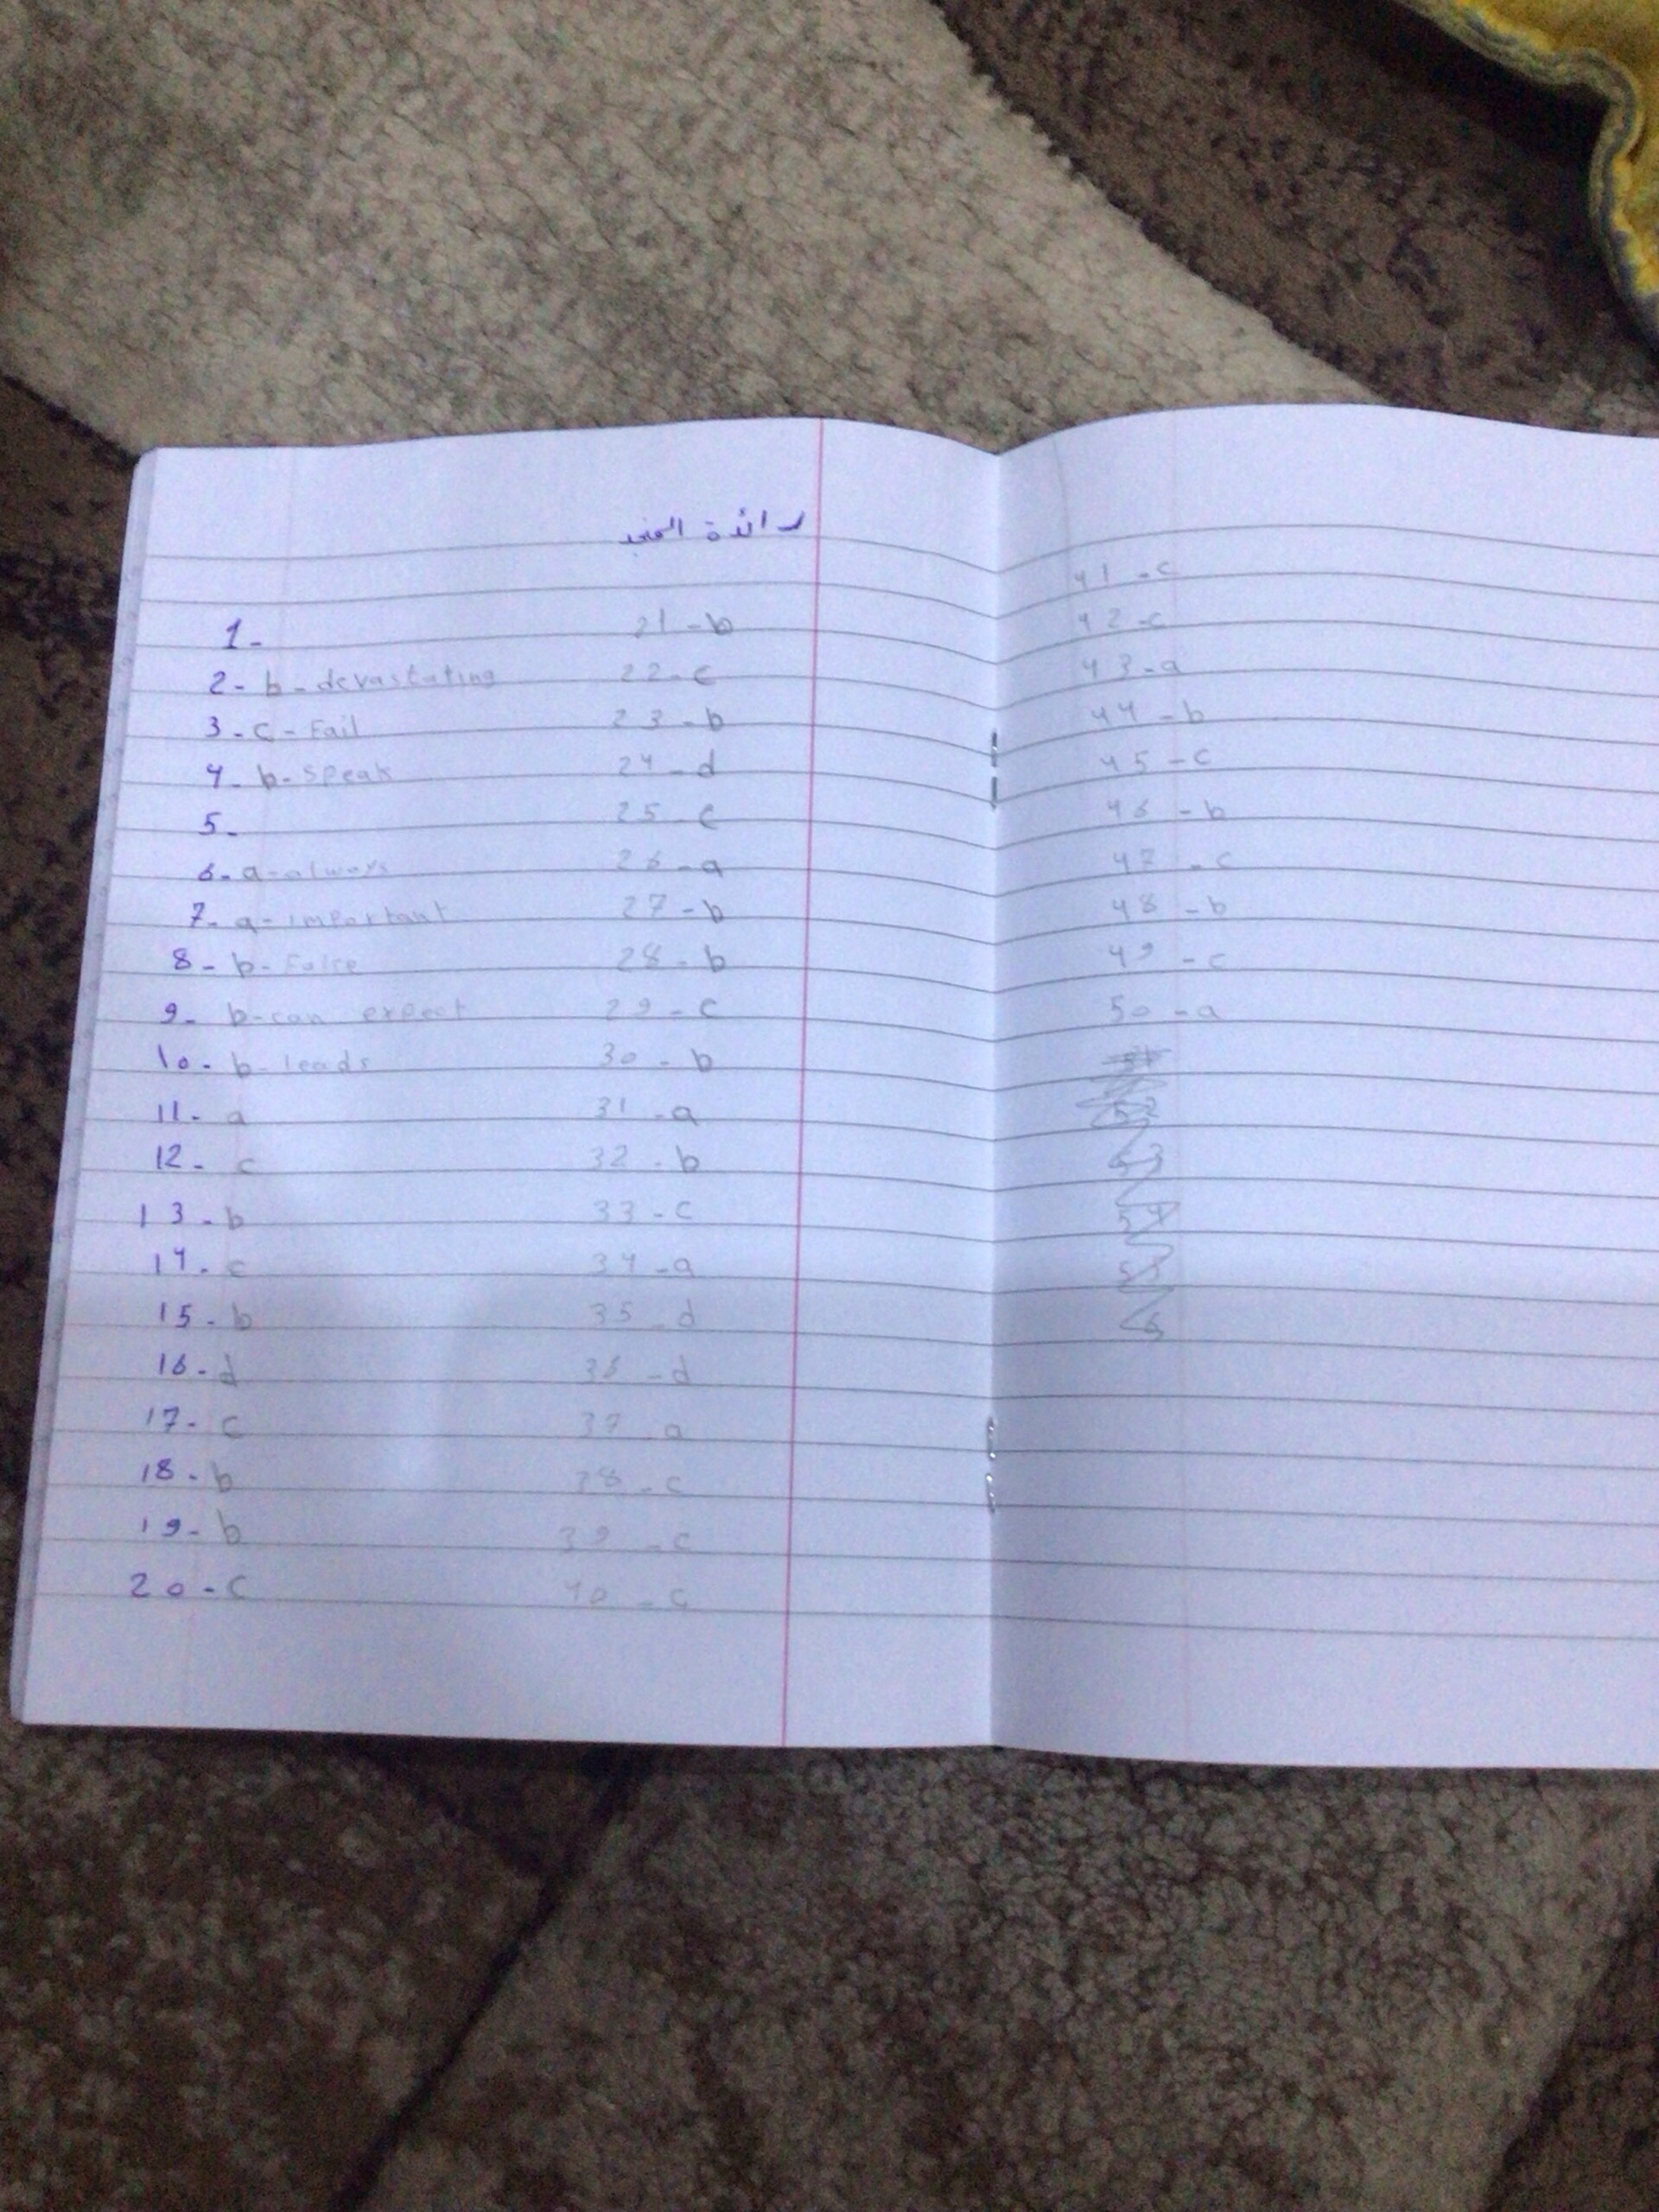 رائدة المنجد
1-
2- b- devastating
3- c- Fail
4- b- speak
5-
6- a- always
7- a- important
8- b- False
9- b- can expect
10- b- leads
11- a
12- c
13- b
14- c
15- b
16- d
17- c
18- b
19- b
20- c
21- b
22- c
23- b
24- d
25- c
26- a
27- b
28- b
29- c
30- b
31- a
32- b
33- c
34- a
35- d
36- d
37- a
38- c
39- c
40- c
41- c
42- c
43- a
44- b
45- c
46- b
47- c
48- b
49- c
50- a